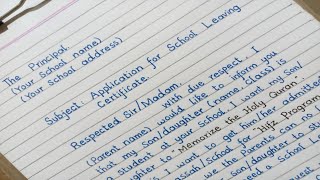 The Principal,
(Your School name)
(Your School address)
Subject: Application for School Leaving
Certificate.
Respected Sir/Madam,
With due respect, I
(Parent name) would like to inform you
that my son/daughter (name, class) is
a student at your school. I want my son/
to "Memorize the Holy Quran".
I want to get him/her admitted
School for "Hifz Program
we the Parents
son/daughter
School